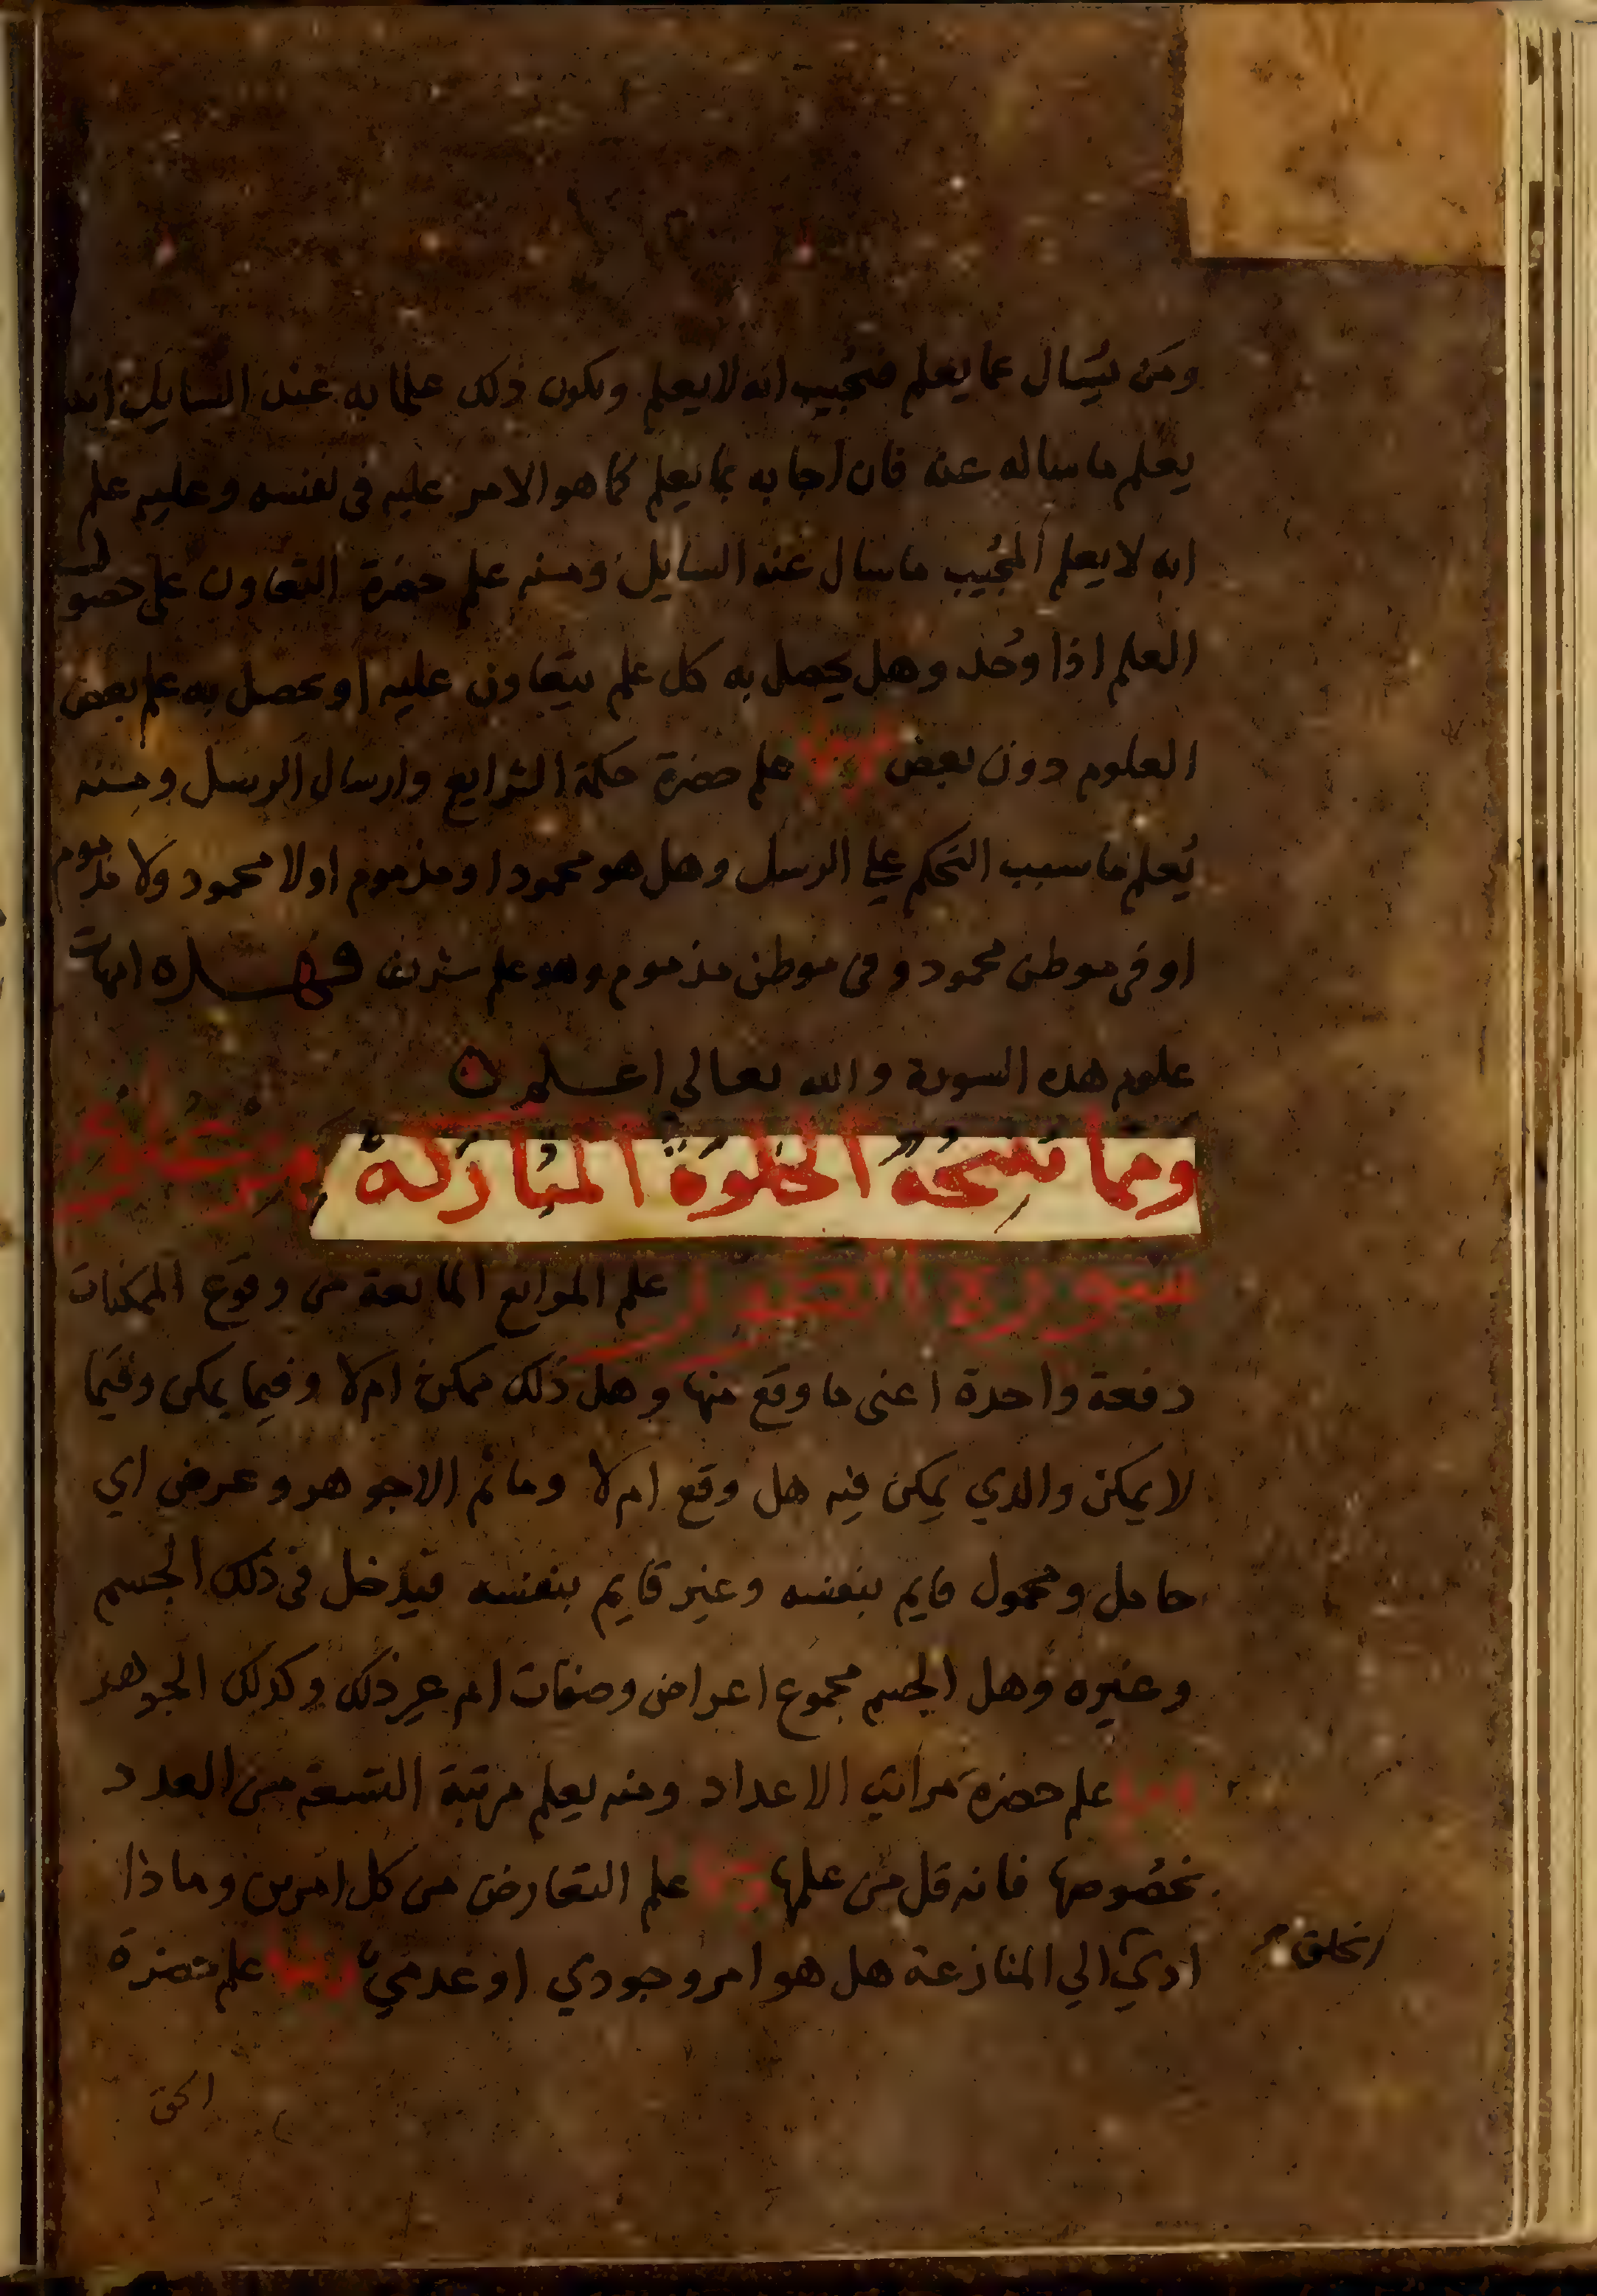 ومن يُسال عما يعلم فيجُيب انه لا يعلم ويكون ذلك علما به عند السايل انه
يعلم ما ساله عنه فان اجابه بما يعلم كما هو الامر عليه في نفسه وعليه علم
انه لا يعلم المجُيب ما سال عنه السايل ومنه علم حضرة التعاون على حصول
العلم اذا وُجد وهل يحصل به كل علم يتعاون عليه او يحصل به علم بعض
العلوم دون بعض ومنها علم حضرة حكمة الشرايع وارسال الرسل ومنه
يُعلم ما سبب التحكم على الرسل وهل هو محمود او مذموم او لا محمود ولا مذموم
او في موطن محمود وفي موطن مذموم وهو علم شريف فهذه امهات
علوم هذه السورة والله تعالى اعلم
ومما تفتحه الخلوة المباركة من علوم
سورة الطور علم الموانع المانعة من وقوع الممكنات
دفعة واحدة اعني ما وقع منها وهل ذلك ممكن ام لا وفيما يمكن وفيما
لا يمكن والذي يمكن فيه هل وقع ام لا وما ثم الا جوهر وعرض اي
حامل ومحمول قايم بنفسه وغير قايم بنفسه فيدخل في ذلك الجسم
وغيره وهل الجسم مجموع اعراض وصفات ام غير ذلك وكذلك الجوهر
ومنها علم حضرة مراتب الاعداد ومنه يعلم مرتبة التسعة من العدد
بخصُوصها فانه قل من علمها ومنها علم التعارض من كل امرين وماذا
ادي الي المنازعة هل هو امر وجودي او عدمي ومنها علم حضرة
الخلق
الحق